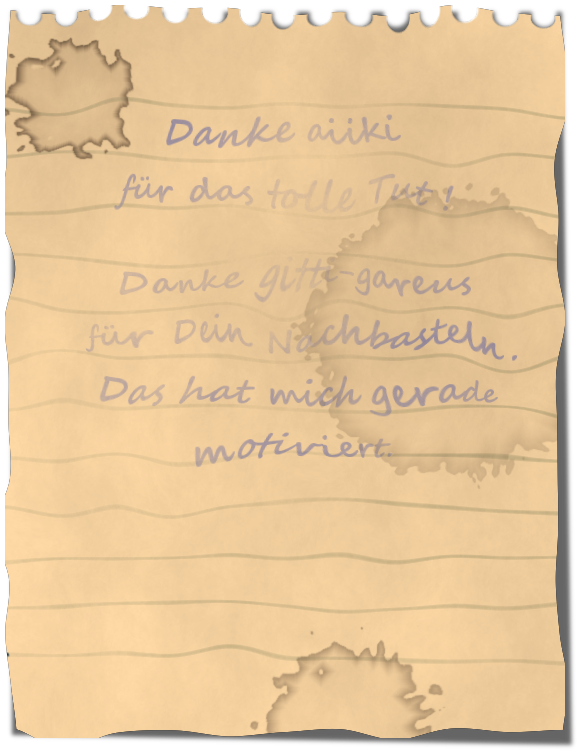 Danke aiiki
für das tolle Tut!
Danke gitti-gareus
für Dein Nachbasteln.
Das hat mich gerade
motiviert.